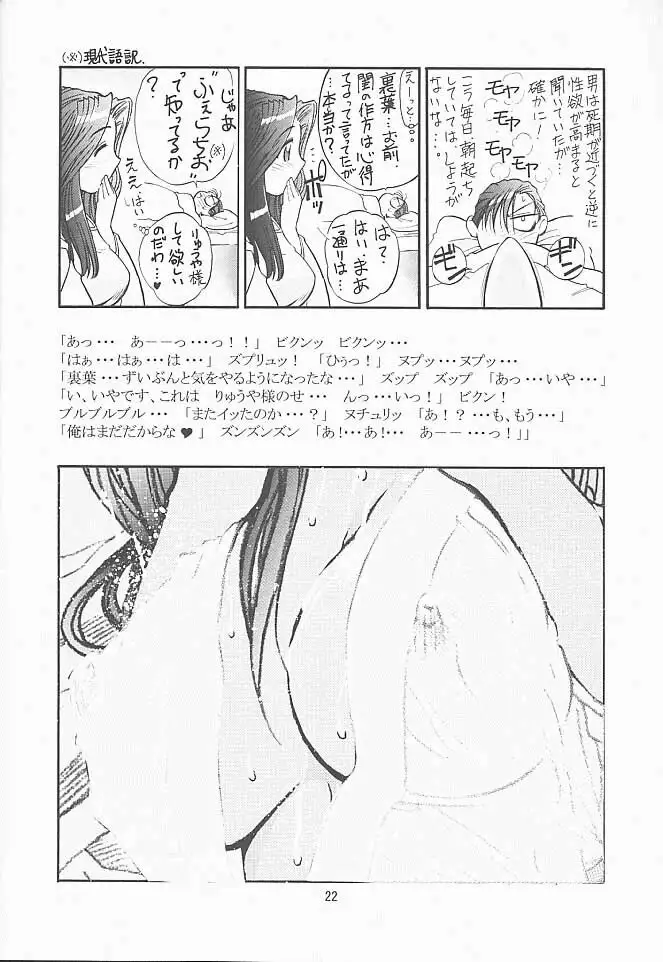 (※)現代語訳.
男は死期が近づくと逆に
性欲が高まると
聞いていたが…
確かに!
こう毎日、朝起ち
していては、しょうが
ないな…。
モヤ
モヤ
モヤ
ギン
ギン
えーっと…。
裏葉…お前、
閨の作方は心得
てるって言ってたが
…本当か?
ポッ
は?
はい、まあ
一通りは…。
じゃあ
"ぶぇらちお"(※)
って知ってるか
?
ええ、はい
りゅうや様
して欲しい
のだわ…♥
「あっ・・・　あーーっ・・・っ！！」　ビクンッ　ビクンッ・・・
「はぁ・・・はぁ・・・は・・・」　ズプリュッ！　「ひぅっ！」　ヌプッ・・・ヌプッ・・・
「裏葉・・・ずいぶんと気をやるようになったな・・・」　ズップ　ズップ　「あっ・・・いや・・・」
「い、いやです、これは　りゅうや様のせ・・・　んっ・・・いっ！」　ビクン！
ブルブルブル・・・　「またイッたのか・・・？」　ヌチュリッ　「あ！？・・・も、もう・・・」
「俺はまだだからな♥」　ズンズンズン　「あ！・・・あ！・・・　あーー・・・っ！」」
22